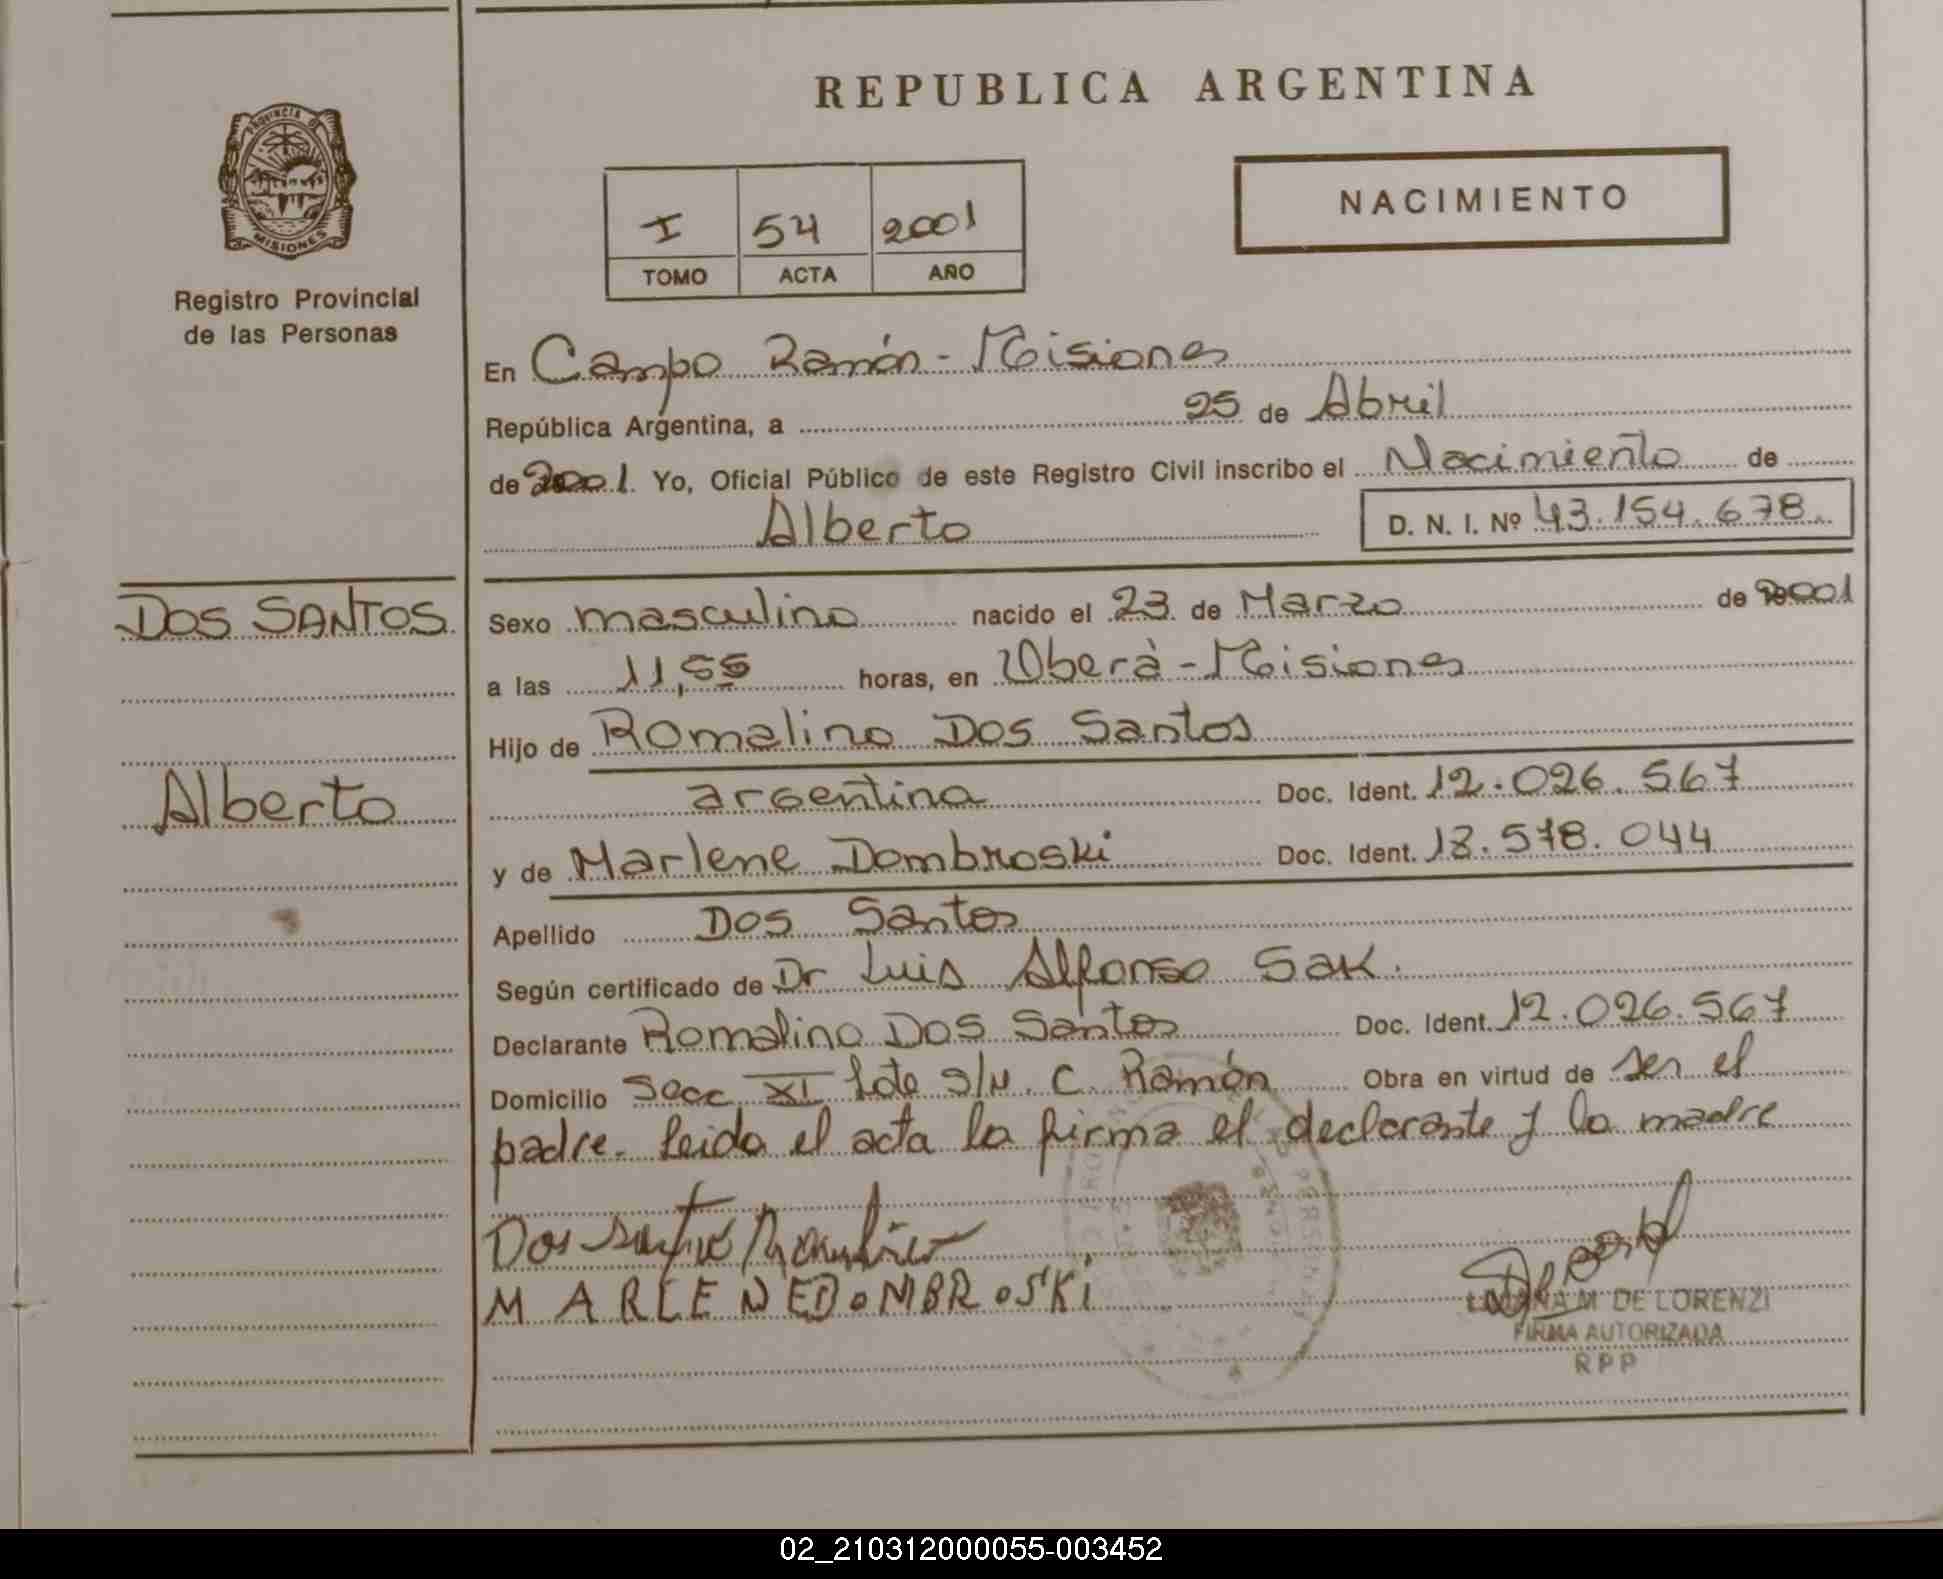 REPUBLICA ARGENTINA
PROVINCIA DE
MISIONES
Registro Provincial
de las Personas
NACIMIENTO
I 54 2001
TOMO ACTA AÑO
En Campo Ramón - Misiones
República Argentina, a 25 de Abril
de 2001. Yo, Oficial Público de este Registro Civil inscribo el Nacimiento de
Alberto D. N. I. Nº 43.154.678.
DOS SANTOS
Alberto
Sexo masculino nacido el 23 de Marzo de 2001
a las 11,55 horas, en Oberà - Misiones
Hijo de Romalino Dos Santos
argentina Doc. Ident. 12.026.567
y de Marlene Dombroski Doc. Ident. 18.578.044
Apellido Dos Santos
Según certificado de Dr Luis Alfonso Sak.
Declarante Romalino Dos Santos Doc. Ident. 12.026.567
Domicilio Secc XI lote s/n. C. Ramón Obra en virtud de ser el
padre. Leida el acta la firma el declarante y la madre
Dos Santos Romalino
MARLENE DOMBROSKi
M DE LORENZI
FIRMA AUTORIZADA
RPP
02_210312000055-003452